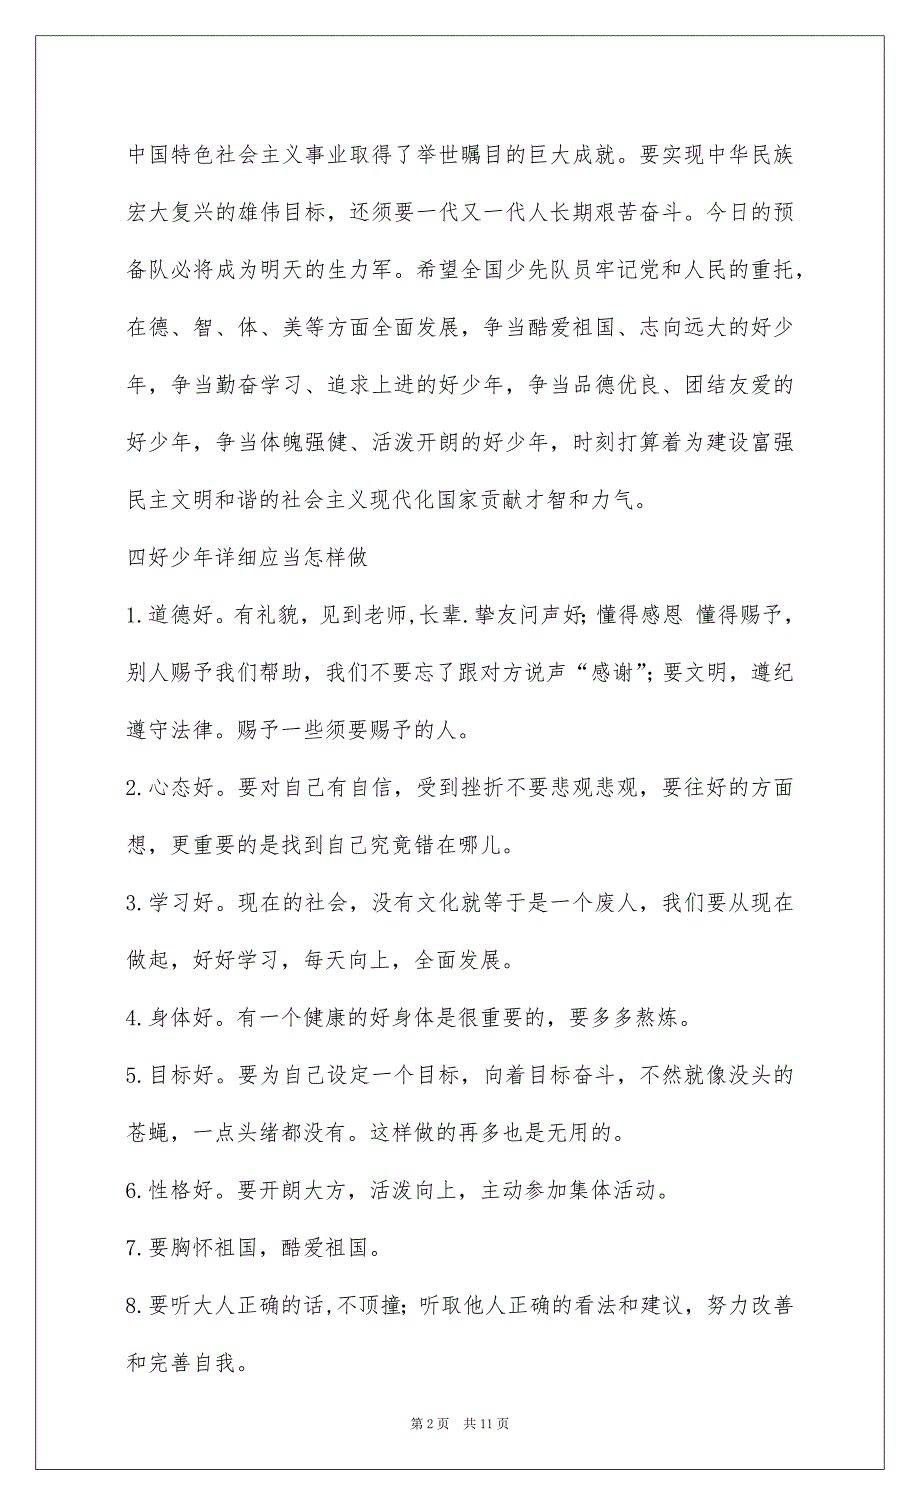 中国特色社会主义事业取得了举世瞩目的巨大成就。要实现中华民族
宏大复兴的雄伟目标，还须要一代又一代人长期艰苦奋斗。今日的预
备队必将成为明天的生力军。希望全国少先队员牢记党和人民的重托，
在德、智、体、美等方面全面发展，争当酷爱祖国、志向远大的好少
年，争当勤奋学习、追求上进的好少年，争当品德优良、团结友爱的
好少年，争当体魄强健、活泼开朗的好少年，时刻打算着为建设富强
民主文明和谐的社会主义现代化国家贡献才智和力气。
四好少年详细应当怎样做
1.道德好。有礼貌，见到老师,长辈.挚友问声好；懂得感恩 懂得赐予，
别人赐予我们帮助，我们不要忘了跟对方说声“感谢”；要文明，遵纪
遵守法律。赐予一些须要赐予的人。
2.心态好。要对自己有自信，受到挫折不要悲观悲观，要往好的方面
想，更重要的是找到自己究竟错在哪儿。
3.学习好。现在的社会，没有文化就等于是一个废人，我们要从现在
做起，好好学习，每天向上，全面发展。
4.身体好。有一个健康的好身体是很重要的，要多多熬炼。
5.目标好。要为自己设定一个目标，向着目标奋斗，不然就像没头的
苍蝇，一点头绪都没有。这样做的再多也是无用的。
6.性格好。要开朗大方，活泼向上，主动参加集体活动。
7.要胸怀祖国，酷爱祖国。
8.要听大人正确的话,不顶撞；听取他人正确的看法和建议，努力改善
和完善自我。
第 2 页 共 11 页